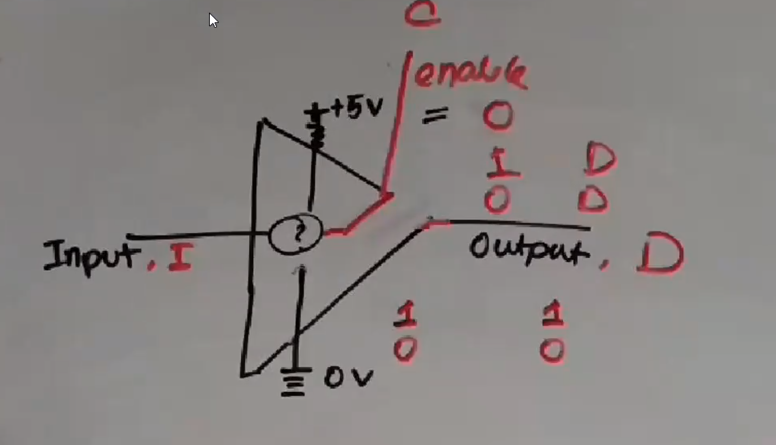 C
enable
+5V
= 0
I D
0 D
Input, I
Output, D
1 1
0 0
0V